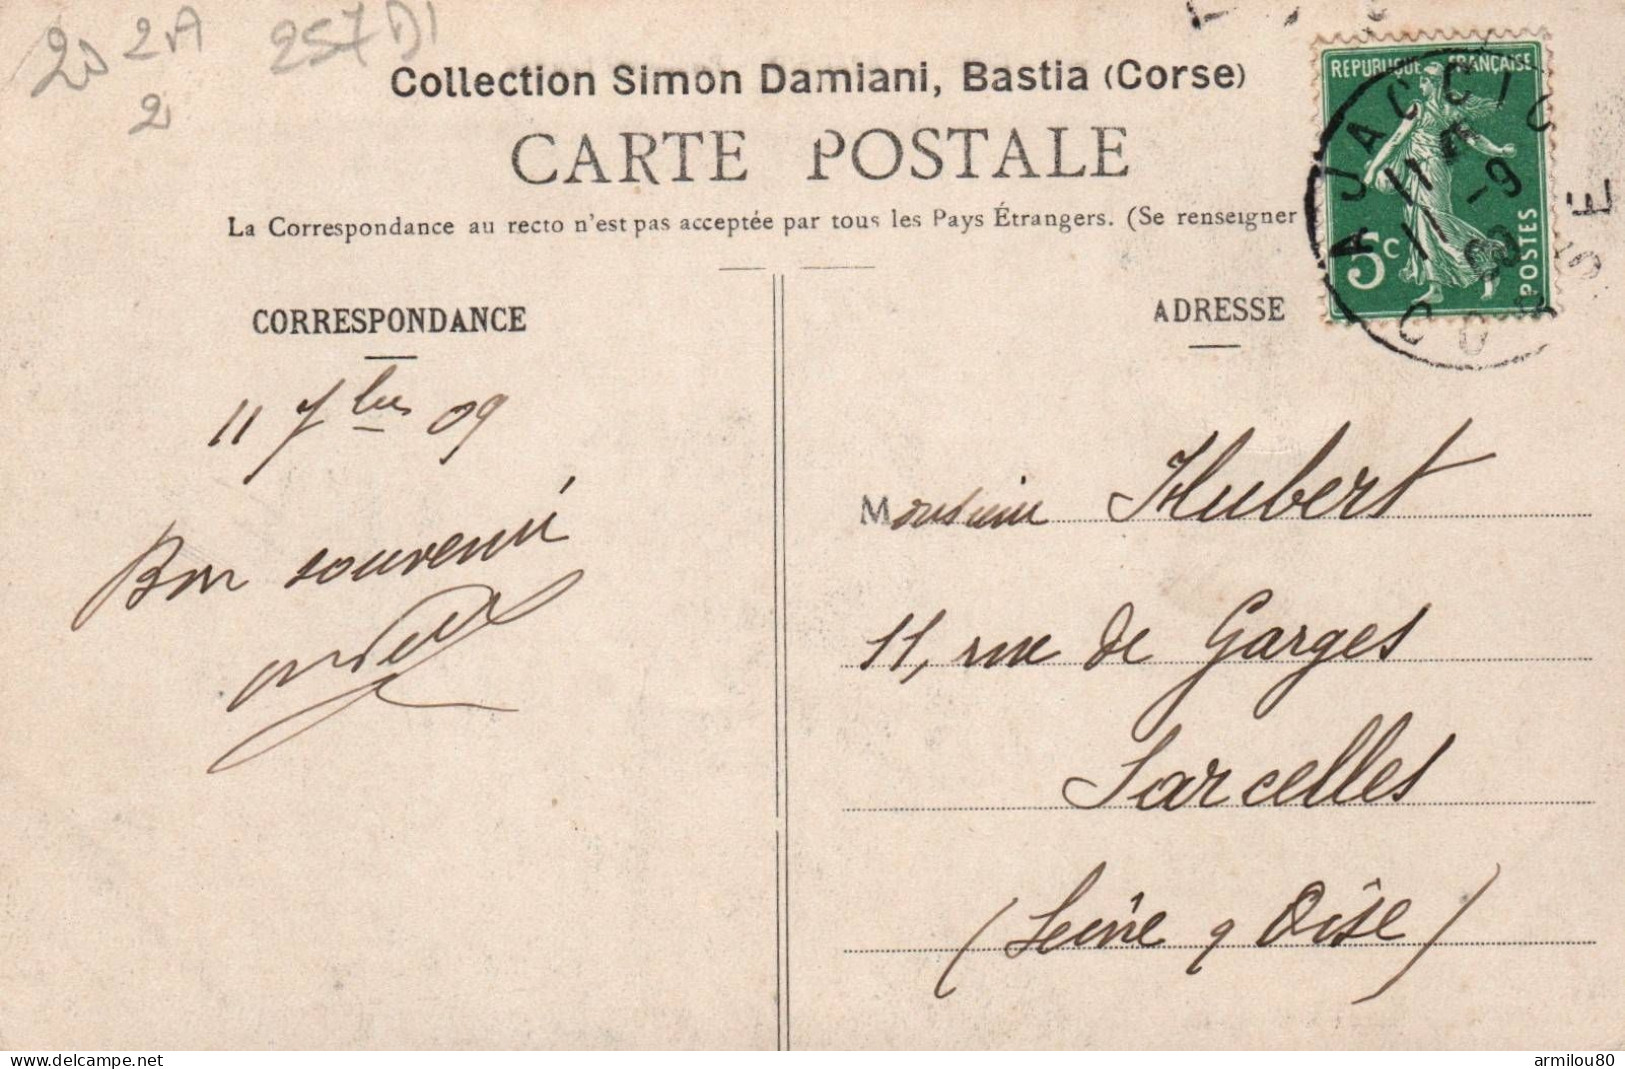 20 2A 257 D1
2
Collection Simon Damiani, Bastia (Corse)
CARTE POSTALE
La Correspondance au recto n'est pas acceptée par tous les Pays Étrangers. (Se renseigner
REPUBLIQUE FRANÇAISE
5c
POSTES
AJACCIO
11 -9
CORSE
CORRESPONDANCE
ADRESSE
11 7bre 09
Bon souvenir
Monsieur Hubert
11, rue de Garges
Sarcelles
(Seine & Oise)
www.delcampe.net
armilou80